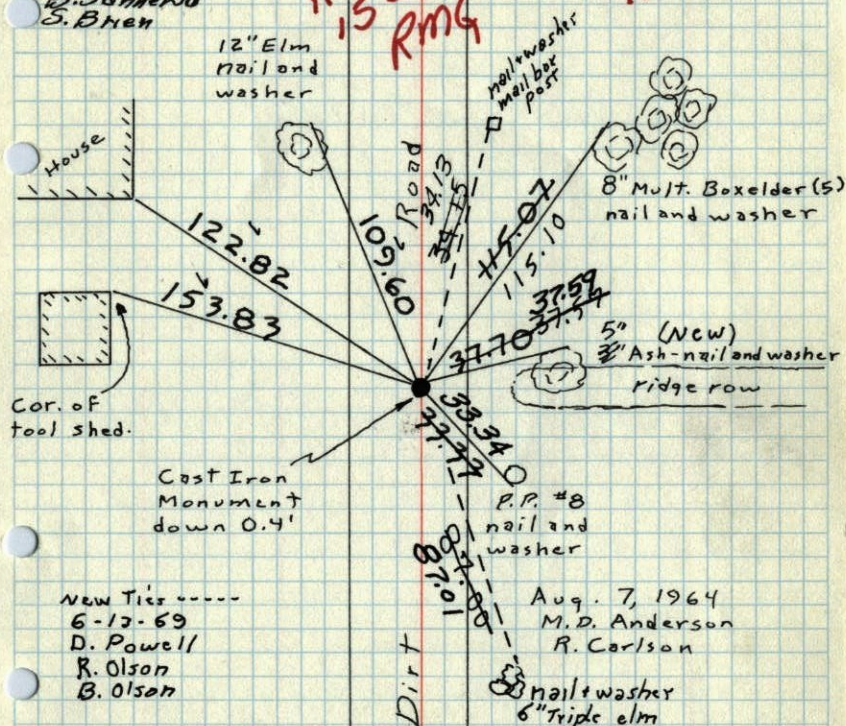 S. Brien
150
RMG
12" Elm
nail and
washer
nail+washer
mail box
post
House
8" Mult. Boxelder (5)
nail and washer
122.82
153.83
109.60
Road
34.13
34.15
115.07
115.10
37.59
37.70
5" (New)
Ash-nail and washer
ridge row
Cor. of
tool shed.
33.34
Cast Iron
Monument
down 0.4'
P.P. #8
nail and
washer
87.00
87.01
New Ties -----
D. Powell
R. Olson
B. Olson
Aug. 7, 1964
M.D. Anderson
R. Carlson
Dirt
nail+washer
6" Triple elm